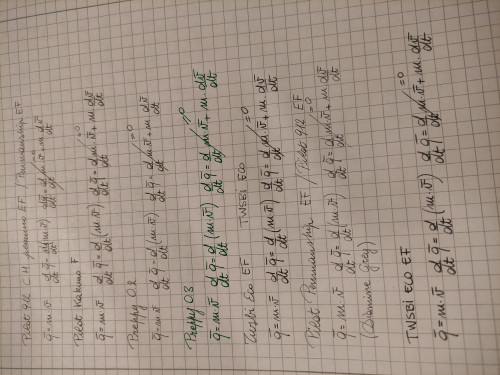 Pilot 912 C.H. penname EF / Penmanship EF
q̄ = m·v̄ dq̄/dt = d(m·v̄)/dt dq̄/dt = d/dt m·v̄ + m·dv̄/dt =0
Pilot Kakuno F
q̄ = m·v̄ d/dt q̄ = d/dt (m·v̄) d/dt q̄ = d/dt m·v̄ + m·dv̄/dt =0
Preppy 0.2
q̄ = m·v̄ d/dt q̄ = d/dt (m·v̄) d/dt q̄ = d/dt m·v̄ + m·dv̄/dt =0
Preppy 0.3
q̄ = m·v̄ d/dt q̄ = d/dt (m·v̄) d/dt q̄ = d/dt m·v̄ + m·dv̄/dt =0
Twsbi Eco EF TWSBI ECO
q̄ = m·v̄ d/dt q̄ = d/dt (m·v̄) d/dt q̄ = d/dt m·v̄ + m·dv̄/dt =0
Pilot Penmanship EF / Pilot 912 EF
q̄ = m·v̄ d/dt q̄ = d/dt (m·v̄) d/dt q̄ = d/dt m·v̄ + m·dv̄/dt =0
(Diamine grey)
TWSBI ECO EF
q̄ = m·v̄ d/dt q̄ = d/dt (m·v̄) d/dt q̄ = d/dt m·v̄ + m·dv̄/dt =0